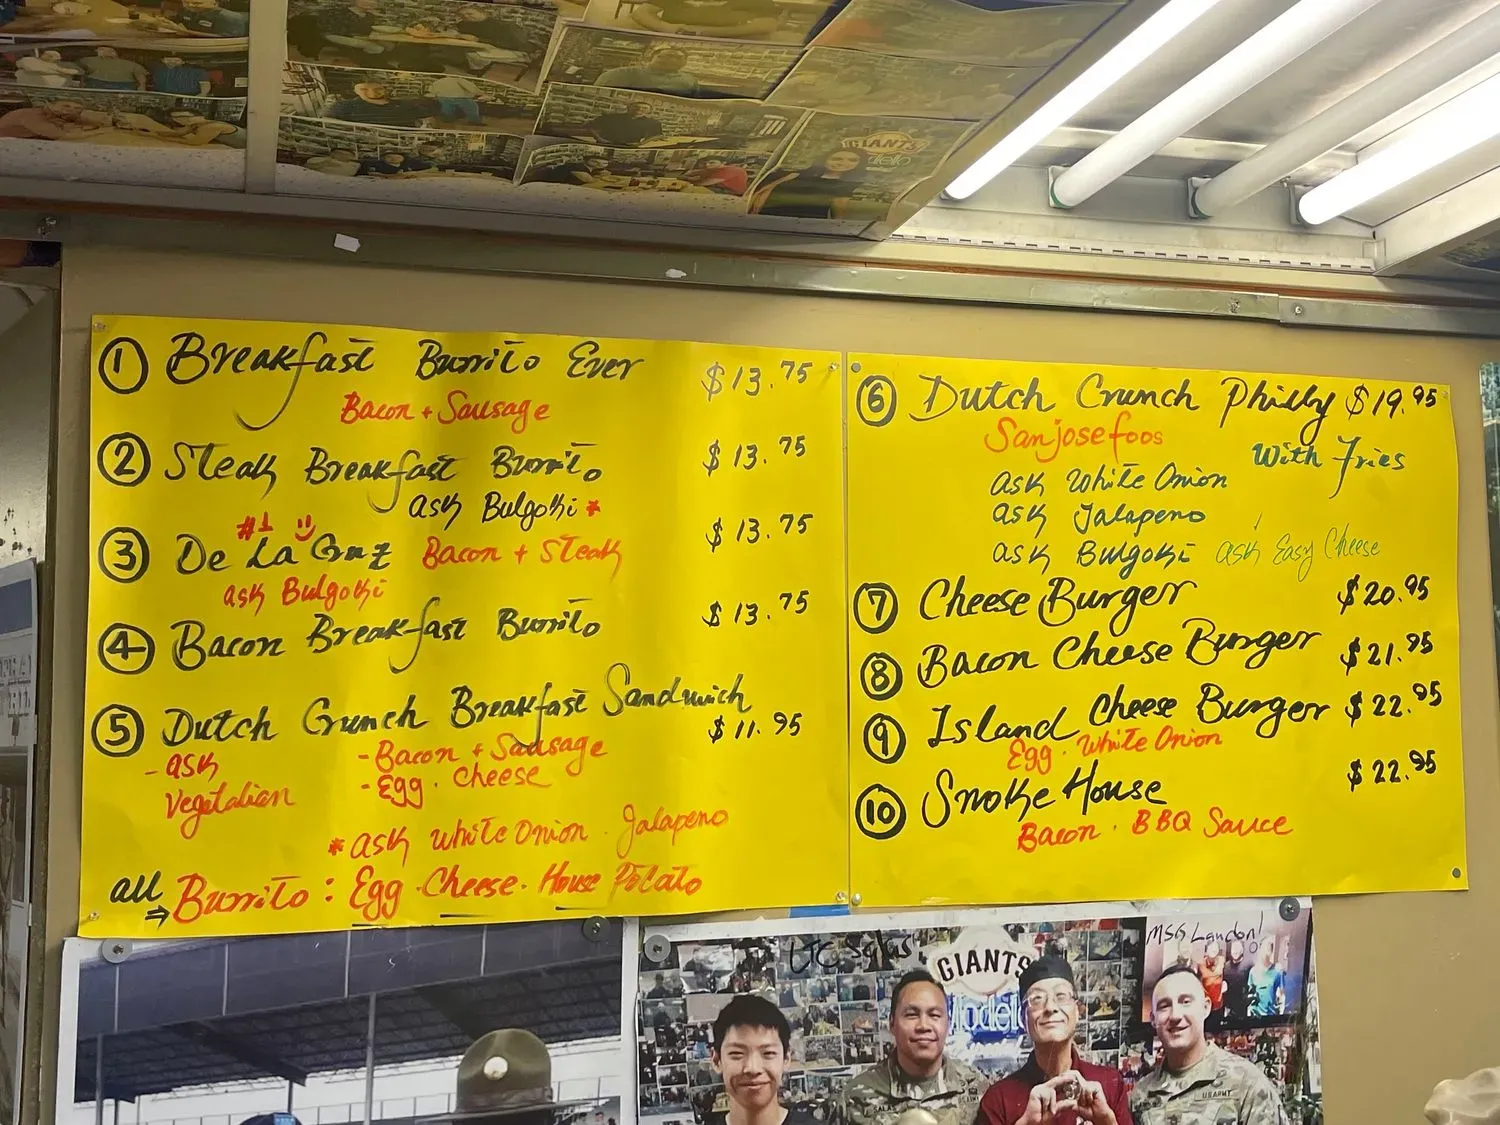 1 Breakfast Burrito Ever $13.75
Bacon + Sausage
2 Steak Breakfast Burrito $13.75
ask Bulgoki *
#1
3 De La Cruz Bacon + Steak $13.75
ask Bulgoki
4 Bacon Breakfast Burrito $13.75
5 Dutch Crunch Breakfast Sandwich
$11.95
- ask
Vegetalian
- Bacon + Sausage
- Egg . Cheese
* ask White Onion . Jalapeno
all ⇒ Burrito : Egg . Cheese . House Potato
6 Dutch Crunch Philly $19.95
Sanjosefoos
With Fries
ask White Onion
ask Jalapeno
ask Bulgoki ask Easy Cheese
7 Cheese Burger $20.95
8 Bacon Cheese Burger $21.95
9 Island Cheese Burger $22.95
Egg . White Onion
10 Smoke House $22.95
Bacon . BBQ Sauce
GIANTS
LTC Salas
MSG Landon!
GIANTS
Modelo
SALAS
U.S. ARMY